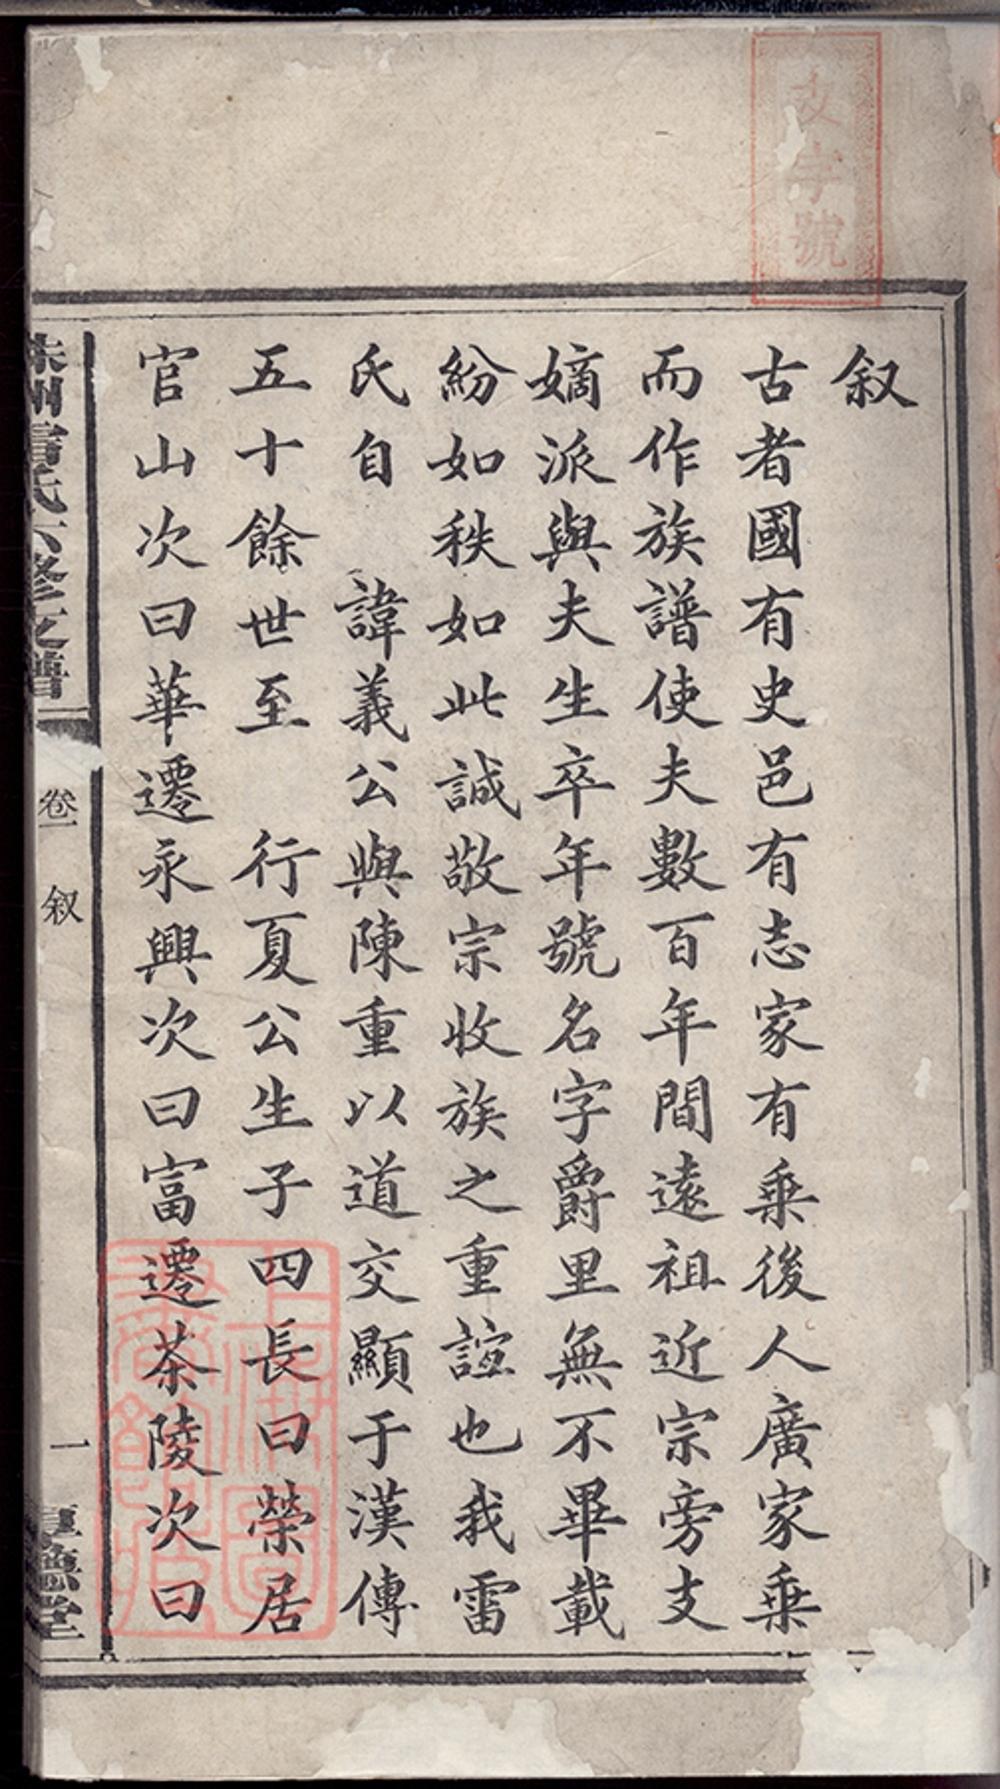 字號
叙
古者國有史邑有志家有乗後人廣家乗
而作族譜使夫數百年間遠祖近宗旁支
嫡派與夫生卒年號名字爵里無不畢載
紛如秩如此誠敬宗收族之重誼也我雷
氏自　諱義公與陳重以道交顯于漢傳
五十餘世至　行夏公生子四長曰榮居
官山次曰華遷永興次曰富遷茶陵次曰
氏六修支譜
卷一　叙
一
堂
上海圖書館藏